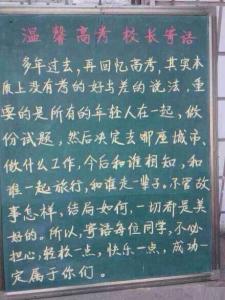 温馨高考 校长寄语
多年过去，再回忆高考，其实本
质上没有考的好与差的说法，重
要的是所有的年轻人在一起，做
份试题，然后决定去哪座城市、
做什么工作，今后和谁相知，和
谁一起旅行，和谁走一辈子。不管故
事怎样、结局如何，一切都是美
好的。所以，寄语每位同学，不必
担心，轻松一点，快乐一点，成功一
定属于你们。